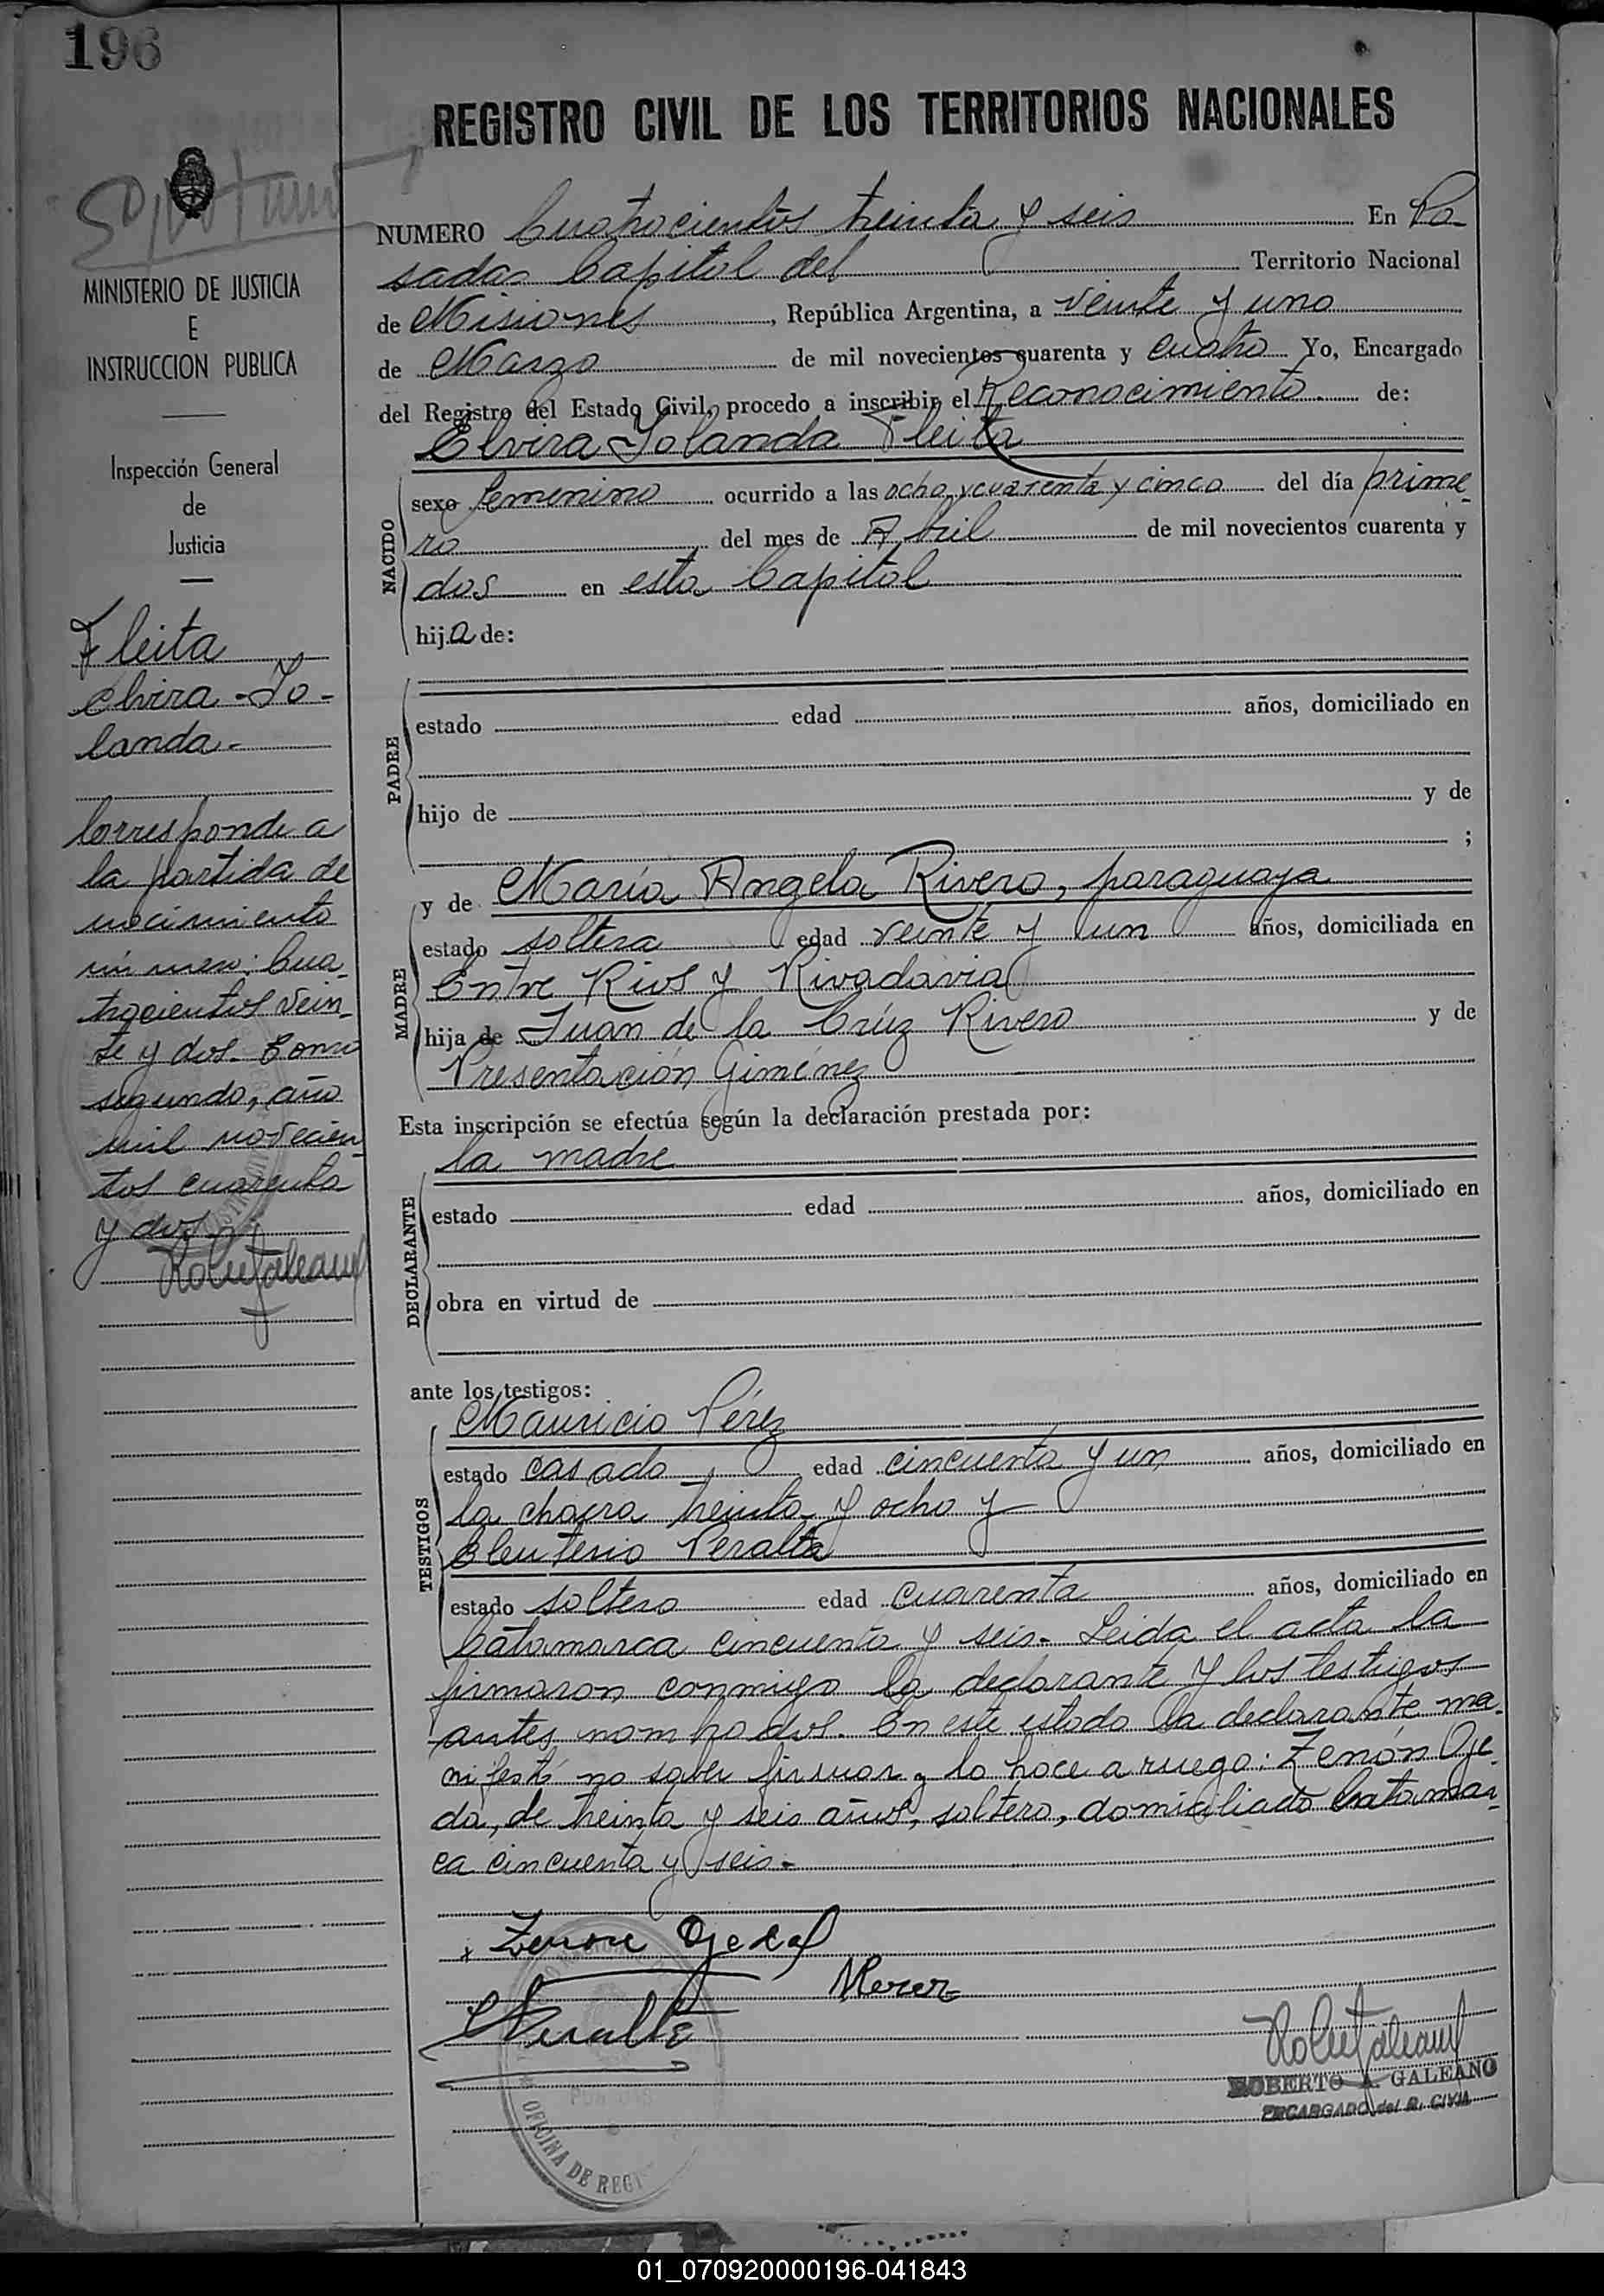 196
REGISTRO CIVIL DE LOS TERRITORIOS NACIONALES
MINISTERIO DE JUSTICIA
E
INSTRUCCION PUBLICA
Inspección General
de
Justicia
Fleita
Elvira Yo-
landa.-
Corresponde a
la partida de
nacimiento
número: Cua-
trocientos vein-
te y dos. Tomo
segundo, año
mil novecien-
tos cuarenta
y dos.-
NUMERO Cuatrocientos treinta y seis En Po-
sadas Capital del Territorio Nacional
de Misiones, República Argentina, a veinte y uno
de Marzo de mil novecientos cuarenta y cuatro Yo, Encargado
del Registro del Estado Civil, procedo a inscribir el Reconocimiento. de:
Elvira Yolanda Fleita
NACIDO
sexo femenino ocurrido a las ocho y cuarenta y cinco del día prime-
ro del mes de Abril de mil novecientos cuarenta y
dos en esta Capital
hija de:
PADRE
estado edad años, domiciliado en
hijo de y de
;
y de María Angela Rivero, paraguaya
MADRE
estado soltera edad veinte y un años, domiciliada en
Entre Rios y Rivadavia
hija de Juan de la Crúz Rivero y de
Presentación Giménez
Esta inscripción se efectúa según la declaración prestada por:
la madre
DECLARANTE
estado edad años, domiciliado en
obra en virtud de
ante los testigos:
Mauricio Pérez
TESTIGOS
estado casado edad cincuenta y un años, domiciliado en
la chacra treinta y ocho y
Eleuterio Peralta
estado soltero edad cuarenta años, domiciliado en
Catamarca cincuenta y seis.- Leida el acta la
firmaron conmigo la declarante y los testigos
antes nombrados. En este estado la declarante ma-
nifestó no saber firmar y lo hace a ruego: Zenón Oje-
da, de treinta y seis años, soltero, domiciliado Catamar-
ca cincuenta y seis.-
Zenon Ojeda
MPerez
EPeralta
ROBERTO A. GALEANO
ENCARGADO del R. CIVIL
OFICINA DE REGI
01_070920000196-041843